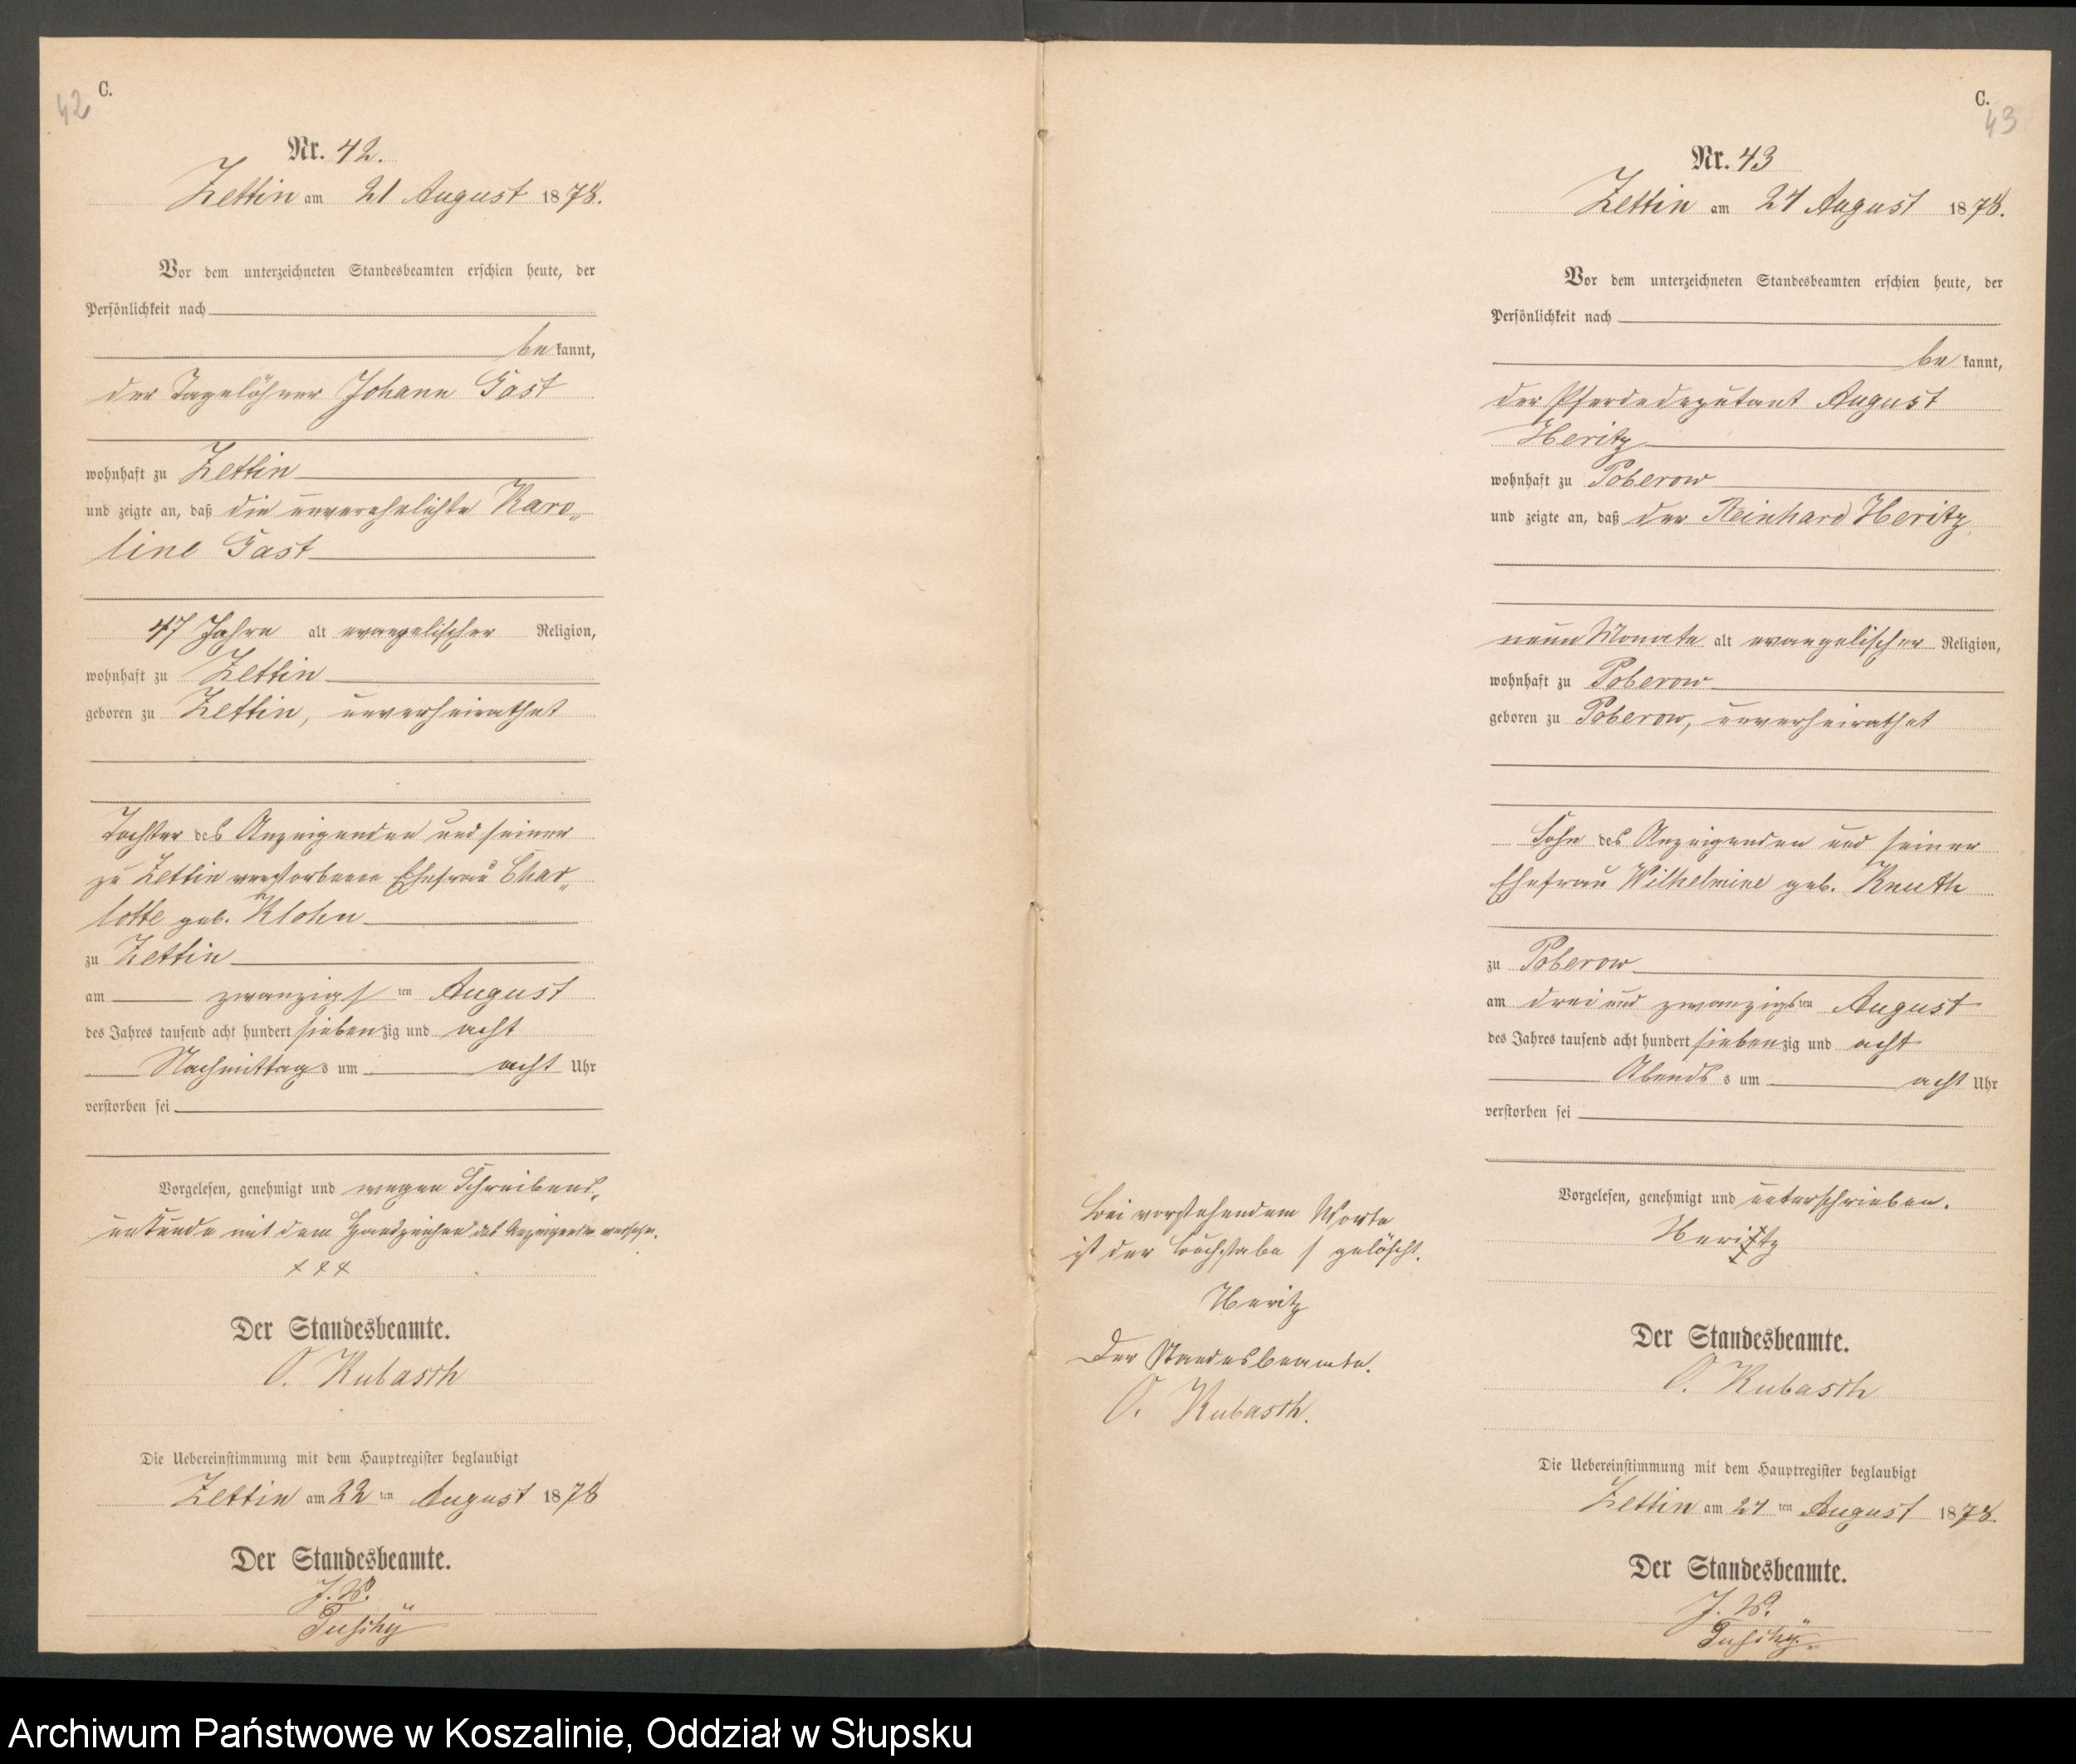 42
C.
Nr. 42.
Zettin am 21 August 1878.
Vor dem unterzeichneten Standesbeamten erschien heute, der
Persönlichkeit nach
be kannt,
der Tagelöhner Johann Gast
wohnhaft zu Zettin
und zeigte an, daß die unverehelichte Karo„
line Gast
47 Jahre alt evangelischer Religion,
wohnhaft zu Zettin
geboren zu Zettin, unverheirathet
Tochter des Anzeigenden und seiner
zu Zettin verstorbenen Ehefrau Char„
lotte geb. Klohn
zu Zettin
am zwanzigs ten August
des Jahres tausend acht hundert siebenzig und acht
Nachmittags um acht Uhr
verstorben sei
Vorgelesen, genehmigt und wegen Schreibens„
unkunde mit dem Handzeichen des Anzeigenden versehn.
+++
Der Standesbeamte.
O. Kubasch
Die Uebereinstimmung mit dem Hauptregister beglaubigt
Zettin am 22 ten August 1878
Der Standesbeamte.
J. V.
C.
43
Nr. 43
Zettin am 24 August 1878.
Vor dem unterzeichneten Standesbeamten erschien heute, der
Persönlichkeit nach
be kannt,
der Pferdedeputant August
Heritz
wohnhaft zu Poberow
und zeigte an, daß der Reinhard Heritz
neun Monate alt evangelischer Religion,
wohnhaft zu Poberow
geboren zu Poberow, unverheirathet
Sohn des Anzeigenden und seiner
Ehefrau Wilhelmine geb. Knuth
zu Poberow
am drei und zwanzigsten August
des Jahres tausend acht hundert siebenzig und acht
Abends s um acht Uhr
verstorben sei
Vorgelesen, genehmigt und unterschrieben.
Heritz
Bei vorstehendem Worte
ist der Buchstabe f gelöscht.
Heritz
Der Standesbeamte.
O. Kubasch.
Der Standesbeamte.
O. Kubasch
Die Uebereinstimmung mit dem Hauptregister beglaubigt
Zettin am 24 ten August 1878.
Der Standesbeamte.
J. V.
Archiwum Państwowe w Koszalinie, Oddział w Słupsku